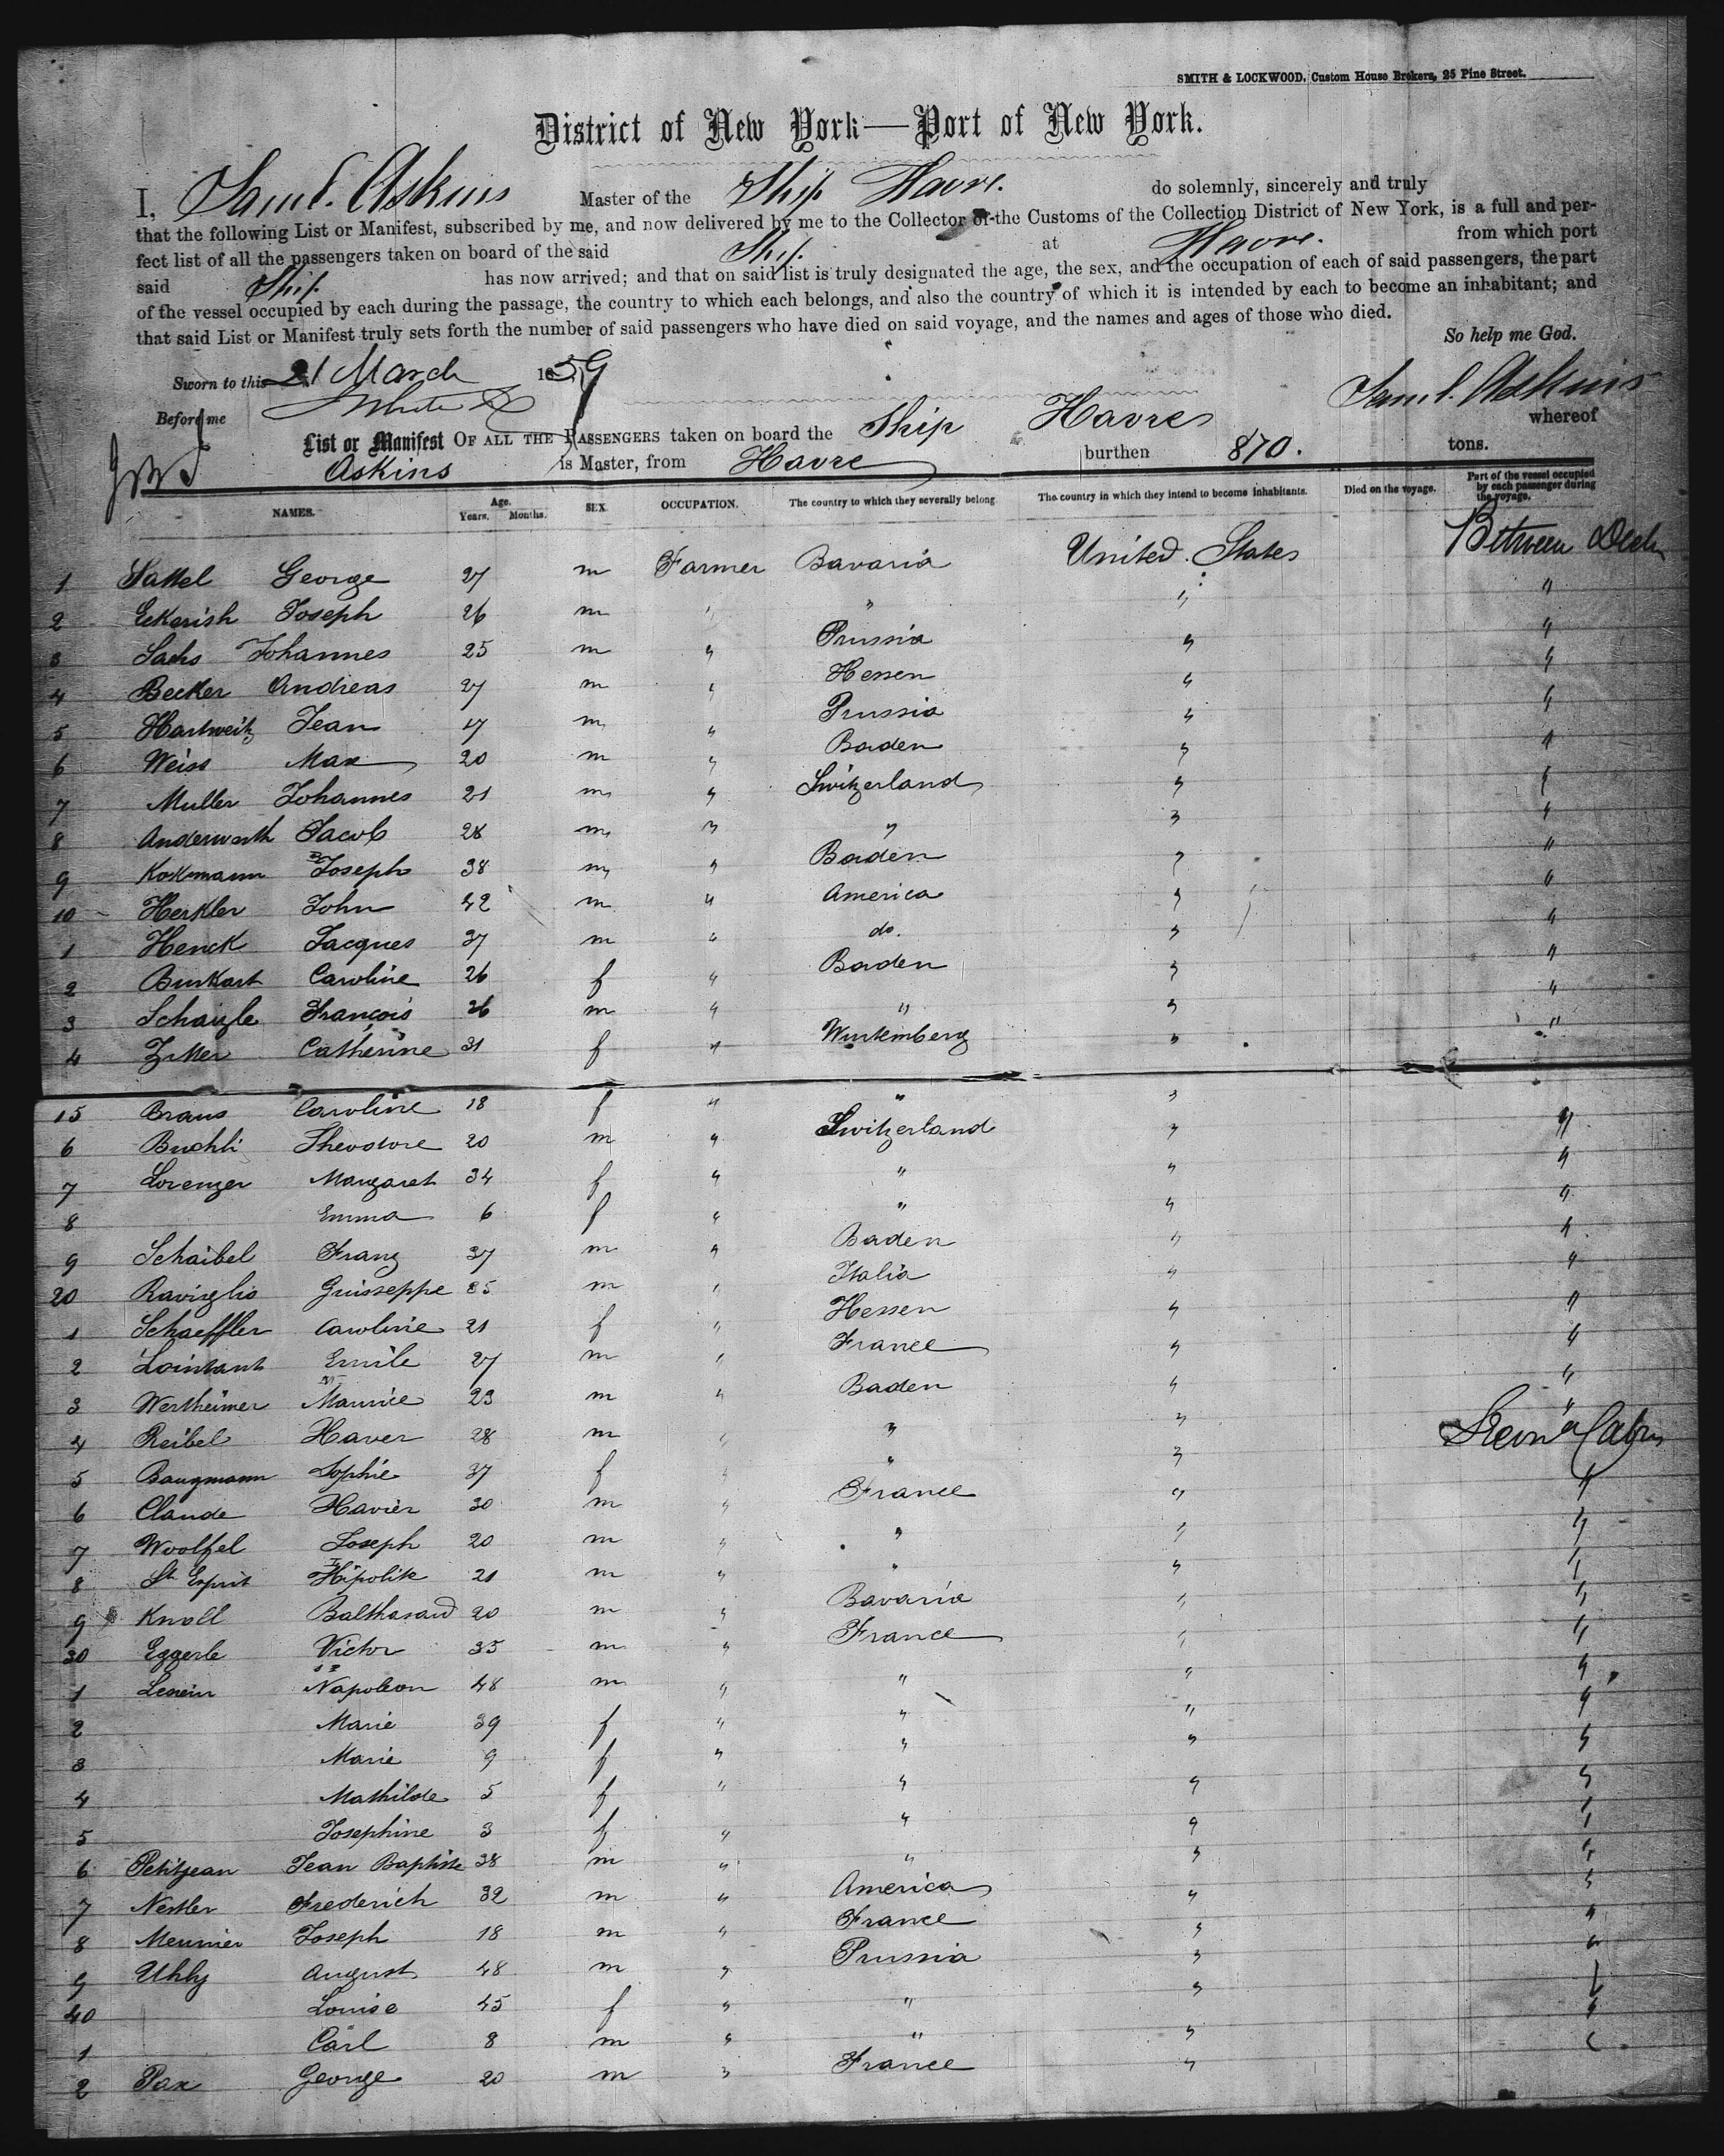 SMITH & LOCKWOOD, Custom House Brokers, 25 Pine Street.
District of New York—Port of New York.
I, Saml. Askins Master of the Ship Havre. do solemnly, sincerely and truly
that the following List or Manifest, subscribed by me, and now delivered by me to the Collector of the Customs of the Collection District of New York, is a full and per-
fect list of all the passengers taken on board of the said Ship at Havre. from which port
said Ship has now arrived; and that on said list is truly designated the age, the sex, and the occupation of each of said passengers, the part
of the vessel occupied by each during the passage, the country to which each belongs, and also the country of which it is intended by each to become an inhabitant; and
that said List or Manifest truly sets forth the number of said passengers who have died on said voyage, and the names and ages of those who died.
So help me God.
Sworn to this 21 March 1859 Saml. Askins
Before me
List or Manifest OF ALL THE PASSENGERS taken on board the Ship Havre whereof
Askins is Master, from Havre burthen 870. tons.
NAMES. Age. Years. Months. SEX. OCCUPATION. The country to which they severally belong. The country in which they intend to become inhabitants. Died on the voyage. Part of the vessel occupied by each passenger during the voyage.
1 Sattel George 27 m Farmer Bavaria United States Between Deck
2 Eckerish Joseph 26 m " " " "
3 Sachs Johannes 25 m " Prussia " "
4 Becker Andreas 27 m " Hessen " "
5 Hartweitz Jean 17 m " Prussia " "
6 Weiss Max 20 m " Baden " "
7 Muller Johannes 21 m " Switzerland " "
8 Anderwerth Jacob 28 m " " " "
9 Kokmann Joseph 38 m " Baden " "
10 Herkler John 42 m " America " "
1 Henck Jacques 37 m " do. " "
2 Burkart Caroline 26 f " Baden " "
3 Schaigle François 26 m " " " "
4 Zitter Catherine 31 f " Wurtemberg " "
15 Braus Caroline 18 f " " "
6 Buchli Theodore 20 m " Switzerland " "
7 Lorenzer Margaret 34 f " " " "
8 Emma 6 f " " " "
9 Schaibel Franz 37 m " Baden " "
20 Raviglio Guisseppe 25 m " Italia " "
1 Schaeffler Caroline 21 f " Hessen " "
2 Lointant Emile 27 m " France " "
3 Wertheimer Maurice 23 m " Baden " "
4 Reibel Xaver 28 m " " " " Second Cabin
5 Baugmann Sophie 37 f " " " "
6 Claude Xavier 30 m " France " "
7 Woolfel Joseph 20 m " " " "
8 St. Esprit Hipolite 21 m " " " "
9 Knoll Balthasard 20 m " Bavaria " "
30 Eggerle Victor 35 m " France " "
1 Napoleon 48 m " " " "
2 Marie 39 f " " " "
3 Marie 9 f " " " "
4 Mathilde 5 f " " " "
5 Josephine 3 f " " " "
6 Petitjean Jean Baptiste 38 m " " " "
7 Nestler Frederich 32 m " America " "
8 Meunier Joseph 18 m " France " "
9 Uhly August 48 m " Prussia " "
40 Louise 45 f " " " "
1 Carl 8 m " " " "
2 Pax George 20 m " France "